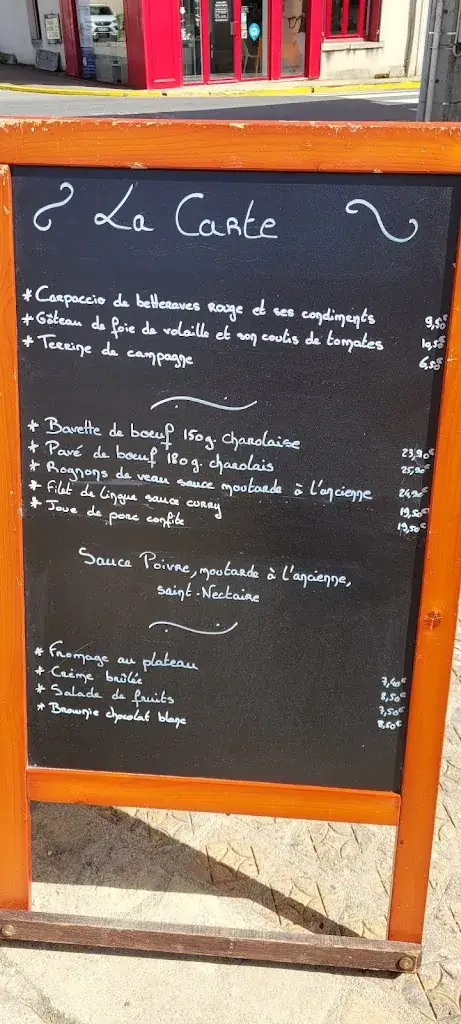 La Carte
* Carpaccio de betteraves rouge et ses condiments 9,50€
* Gâteau de foie de volaille et son coulis de tomates 10,50€
* Terrine de campagne 6,50€
* Bavette de boeuf 150g. charolaise 23,90€
* Pavé de boeuf 180g. charolais 25,90€
* Rognons de veau sauce moutarde à l'ancienne 24,90€
* Filet de lingue sauce curry 19,50€
* Joue de porc confite 19,50€
Sauce Poivre, moutarde à l'ancienne,
saint-Nectaire
* Fromage au plateau 7,40€
* Crème brûlée 8,50€
* Salade de fruits 7,50€
* Brownie chocolat blanc 8,50€